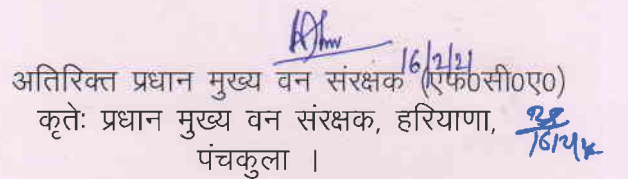 16/2/21
अतिरिक्त प्रधान मुख्य वन संरक्षक (एफ0सी0ए0)
कृतेः प्रधान मुख्य वन संरक्षक, हरियाणा,
पंचकुला ।